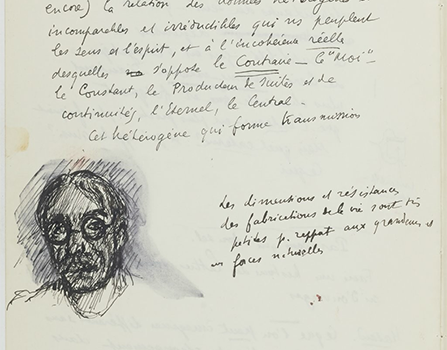 encore) la relation des données hétérogènes
incomparables et irréductibles qui ns peuplent
les sens et l'esprit, et à l'incohérence réelle
desquelles s'oppose le Contraire — le "Moi" —
le Constant, le Producteur de suites et de
continuités, l'Eternel, le Central.
Cet hétérogène qui forme transmission
Les dimensions et résistances
des fabrications de la vie sont très
petites p. rapport aux grandeurs et
forces naturelles